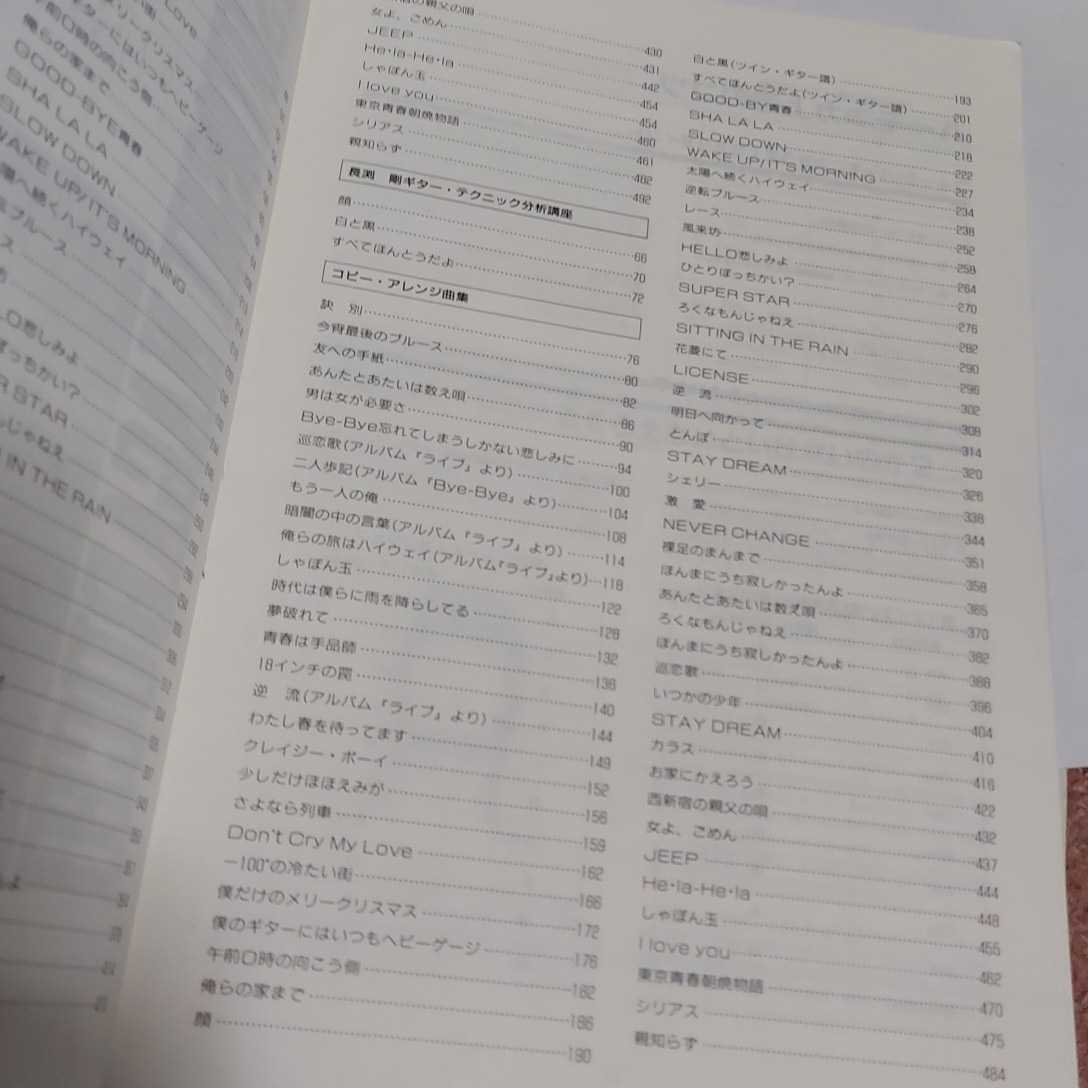 Love
リークリスマス
ギターにはいつもヘビーゲージ
午前0時の向こう側
俺らの家まで
GOOD-BYE青春
SHA LA LA
SLOW DOWN
WAKE UP/IT'S MORNING
へ続くハイウェイ
ブルース
悲しみよ
ぼっちかい?
STAR
んじゃねえ
IN THE RAIN
宿の親父の唄……430
女よ、ごめん……431
JEEP……442
He・la-He・la……454
しゃぼん玉……454
I love you……460
東京青春朝焼物語……461
シリアス……482
親知らず……492
長渕 剛ギター・テクニック分析講座
顔……66
白と黒……70
すべてほんとうだよ……72
コピー・アレンジ曲集
訣 別……76
今宵最後のブルース……80
友への手紙……82
あんたとあたいは数え唄……86
男は女が必要さ……90
Bye-Bye忘れてしまうしかない悲しみに……94
巡恋歌(アルバム『ライブ』より)……100
二人歩記(アルバム『Bye-Bye』より)……104
もう一人の俺……108
暗闇の中の言葉(アルバム『ライブ』より)……114
俺らの旅はハイウェイ(アルバム『ライブ』より)…118
しゃぼん玉……122
時代は僕らに雨を降らしてる……128
夢破れて……132
青春は手品師……136
18インチの罠……140
逆 流(アルバム『ライブ』より)……144
わたし春を待ってます……149
クレイジー・ボーイ……152
少しだけほほえみが……156
さよなら列車……159
Don't Cry My Love……162
−100°の冷たい街……166
僕だけのメリークリスマス……172
僕のギターにはいつもヘビーゲージ……176
午前0時の向こう側……182
俺らの家まで……186
顔……190
白と黒(ツイン・ギター譜)……193
すべてほんとうだよ(ツイン・ギター譜)……201
GOOD-BY青春……210
SHA LA LA……218
SLOW DOWN……222
WAKE UP/IT'S MORNING……227
太陽へ続くハイウェイ……234
逆転ブルース……238
レース……252
風来坊……258
HELLO悲しみよ……264
ひとりぼっちかい?……270
SUPER STAR……276
ろくなもんじゃねえ……282
SITTING IN THE RAIN……290
花菱にて……296
LICENSE……302
逆 流……308
明日へ向かって……314
とんぼ……320
STAY DREAM……326
シェリー……338
激 愛……344
NEVER CHANGE……351
裸足のまんまで……358
ほんまにうち寂しかったんよ……365
あんたとあたいは数え唄……370
ろくなもんじゃねえ……382
ほんまにうち寂しかったんよ……388
巡恋歌……396
いつかの少年……404
STAY DREAM……410
カラス……416
お家にかえろう……422
西新宿の親父の唄……432
女よ、ごめん……437
JEEP……444
He・la-He・la……448
しゃぼん玉……455
I love you……462
東京青春朝焼物語……470
シリアス……475
親知らず……484